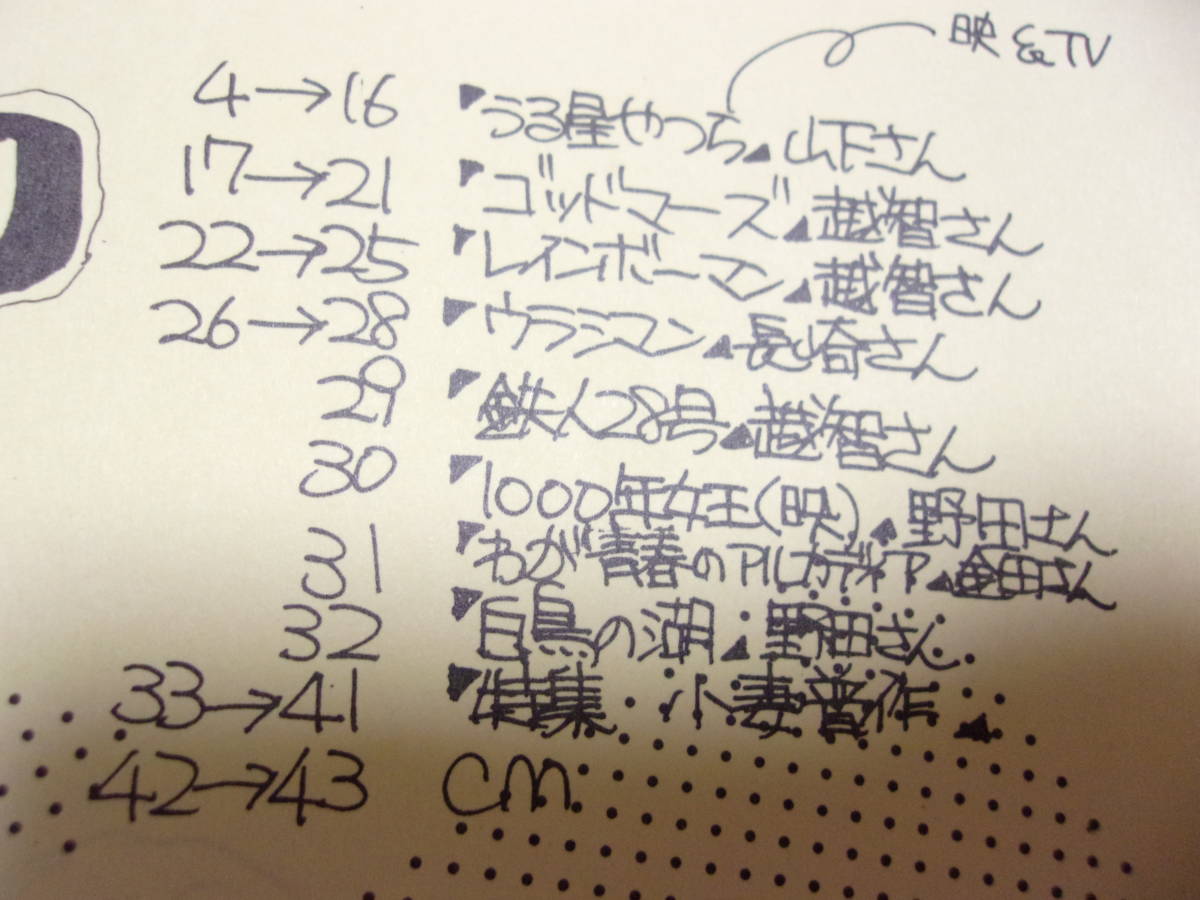 映&TV
4→16 うる星やつら 山下さん
17→21 ゴッドマーズ 越智さん
22→25 レインボーマン 越智さん
26→28 ウラシマン 長崎さん
29 鉄人28号 越智さん
30 1000年女王(映) 野田さん
31 わが青春のアルカディア 金田さん
32 白鳥の湖 野田さん
33→41 特集・小妻普作
42→43 CM